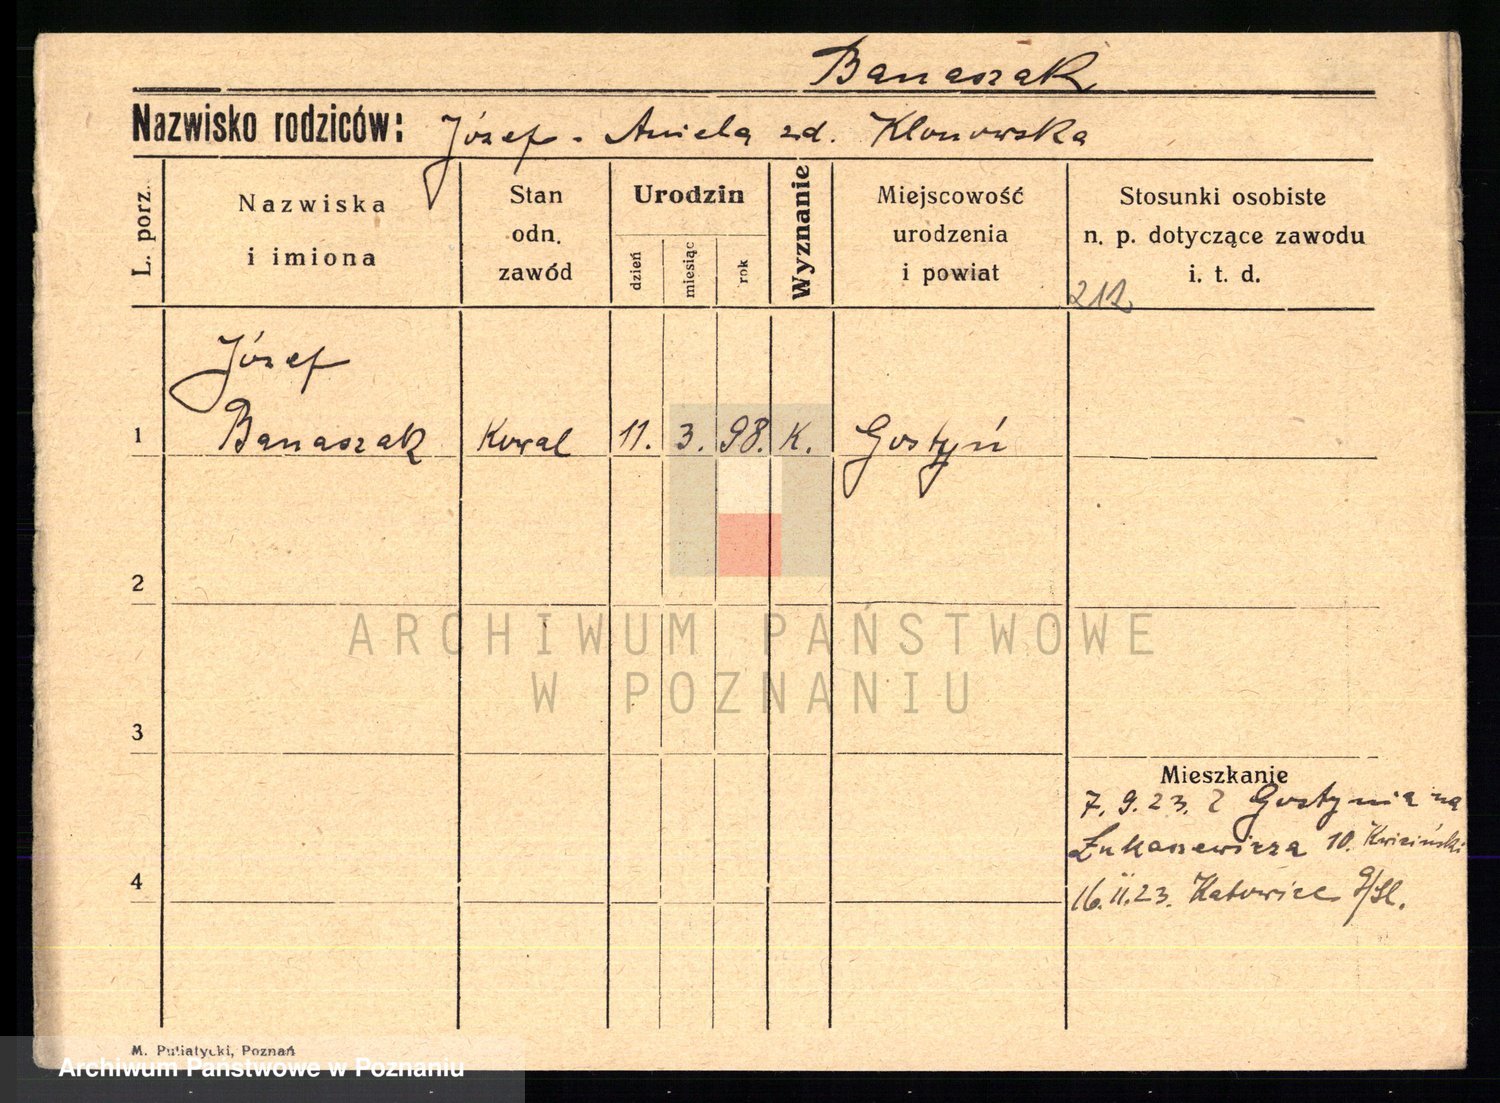 Banaszak
Nazwisko rodziców: Józef - Aniela zd. Klonowska
L. porz.
Nazwiska
i imiona
Stan
odn.
zawód
Urodzin
dzień
miesiąc
rok
Wyznanie
Miejscowość
urodzenia
i powiat
Stosunki osobiste
n. p. dotyczące zawodu
i. t. d.
212
Józef
1 Banaszak Kowal 11. 3. 98. K. Gostyń
2
ARCHIWUM PAŃSTWOWE
W POZNANIU
3
Mieszkanie
7. 9. 23. z Gostynia na
Łukaszewicza 10. Kwiciński
4
16. II. 23. Katowice G/Sl.
M. Putiatycki, Poznań
Archiwum Państwowe w Poznaniu